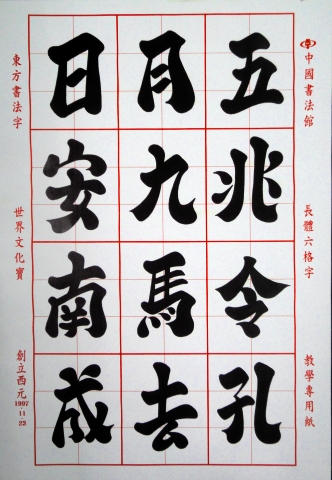 中國書法館
長體六格字
教學專用紙
五兆令孔
月九馬去
日安南成
東方書法字
世界文化寶
創立西元1997·11·23